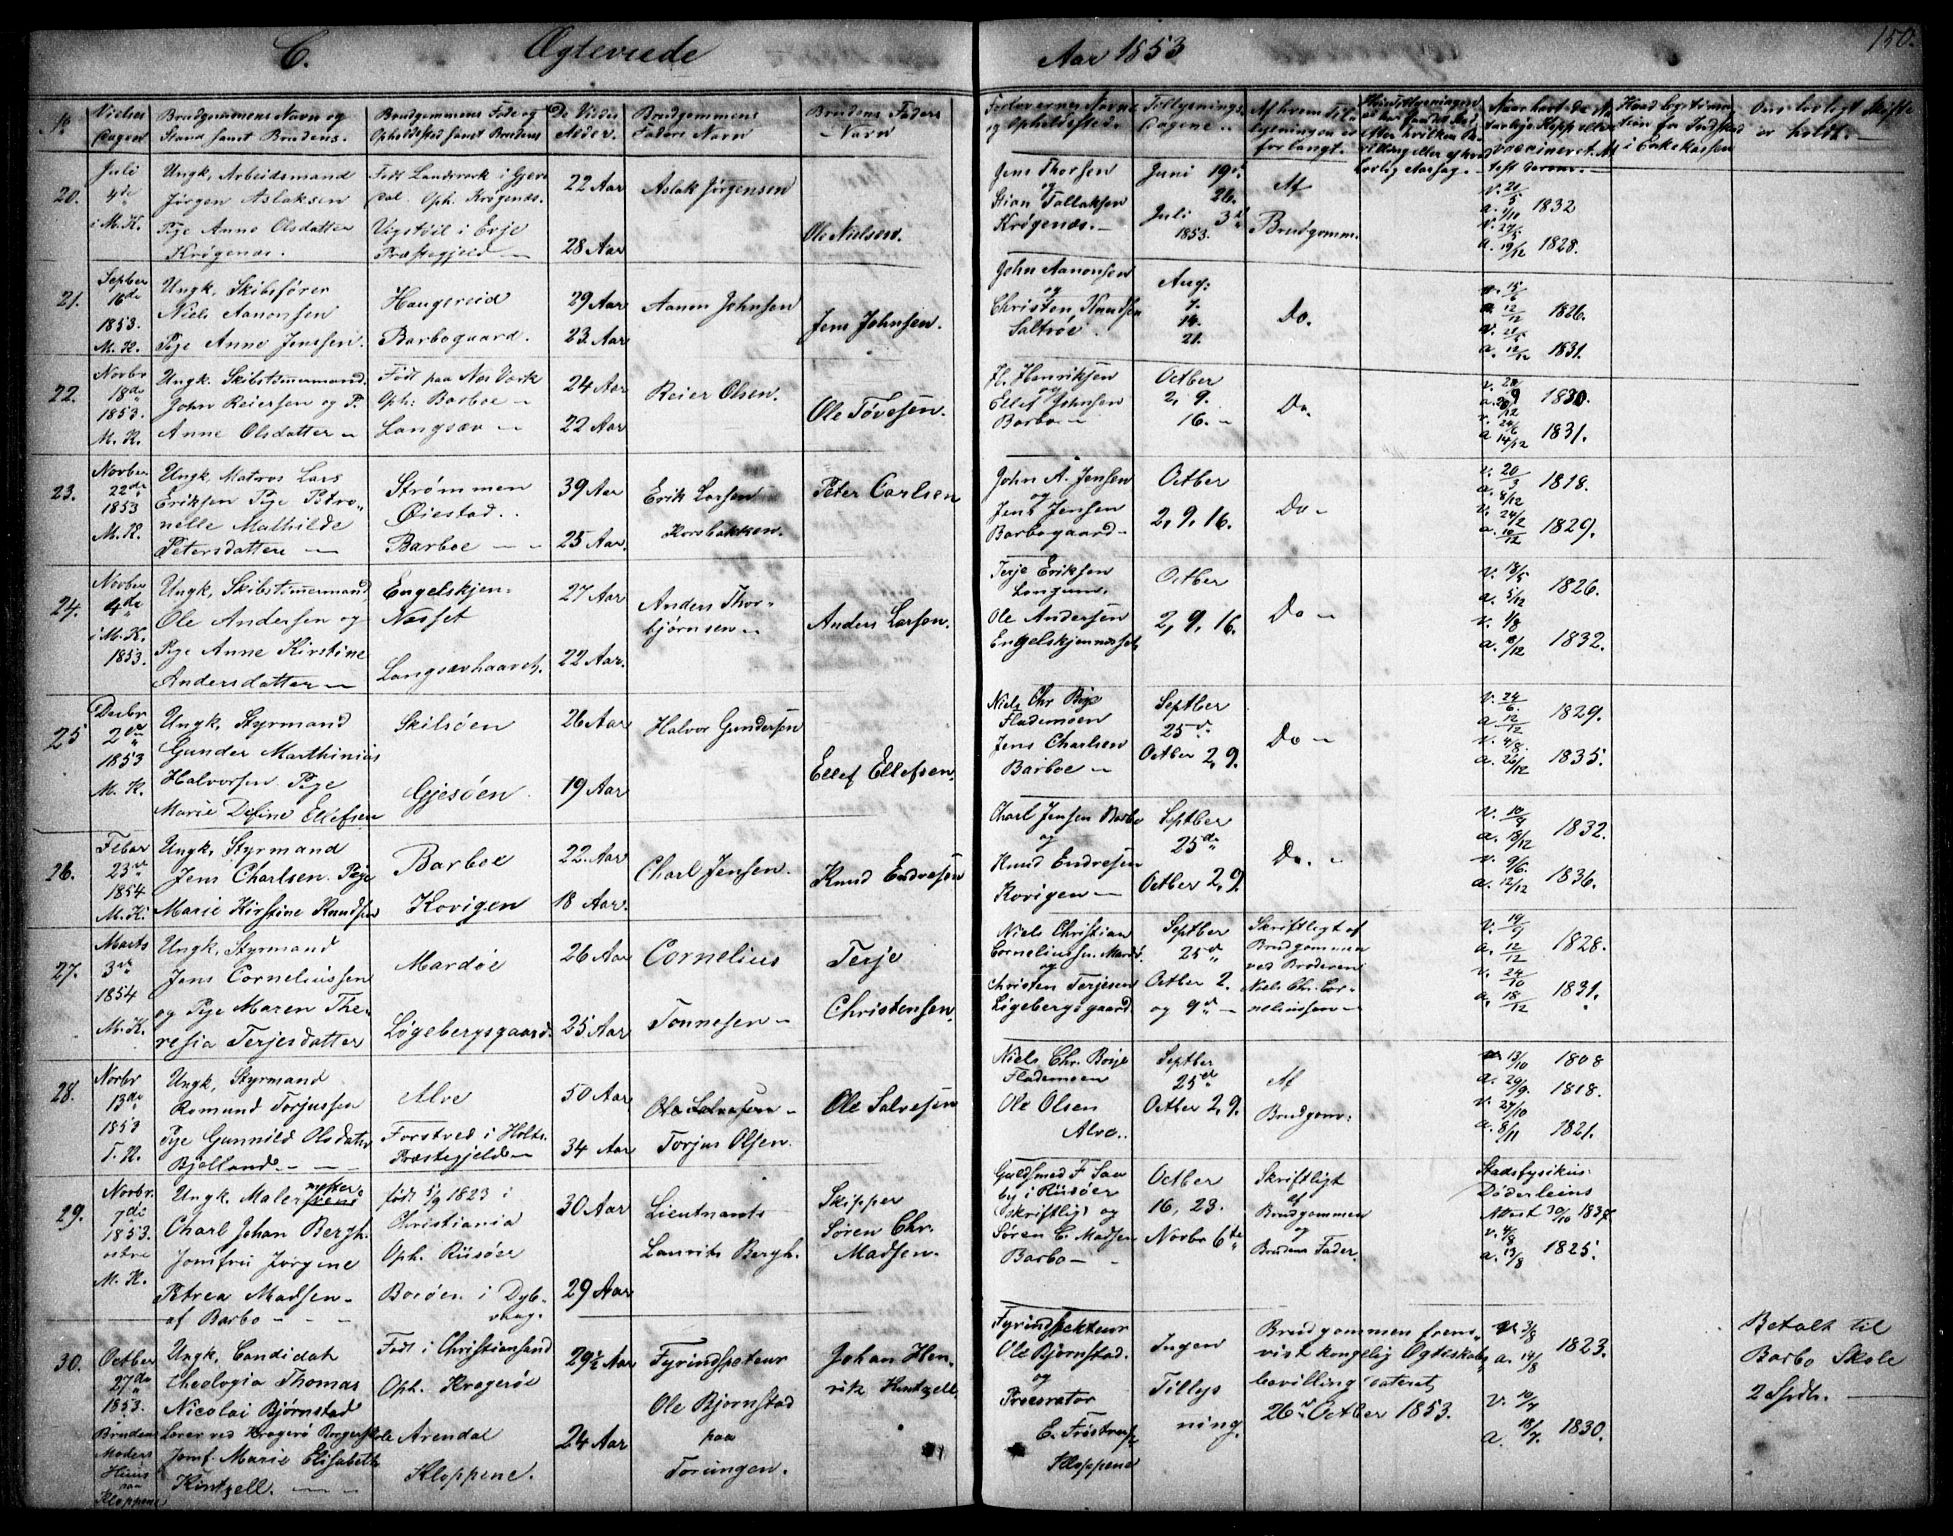 C. Ægteviede Aar 1853 150.
No Vielses Dagen
Brudgommens Navn og Stand samt Brudens.
Brudgommens Føde og Opholdsted samt Brudens
De Viedes Alder.
Brudgommens Faders Navn
Brudens Faders Navn
Forlovernes Navne og Opholdssted.
Tillysnings Dagene
Af hvem Tillysningen er forlangt.
Om lovligt Skifte er holdt.
20.
Juli
4de
i M. K.
Ungk. Arbeidsmand
Jörgen Aslaksen
Pige Anne Olsdatter
Krögenæs.
Född Landvik i Gjere
dal. Oph. Krögenæs.
Vigstöl i Evje
Præstegjeld
22 Aar
28 Aar
Aslak Jörgensen
Ole Nielsen.
Jens Thorsen
og
Stian Tallaksen
Krögenæs.
Juni 19de
26.
Juli 3de
1853.
Af
Brudgomm.
v. 20/5
a. 1/10 1832
v. 27/5
a. 19/12 1828.
21.
Septber
16de
1853.
M. K.
Ungk. Skibsförer
Niels Aanonsen
Pige Anne Jenssen.
Haugereid
Barbogaard.
29 Aar
23 Aar
Aanon Johnsen
Jens Johnsen.
John Aanonsen
og
Christen Knudsen
Saltröe.
Aug:
7.
14.
21.
Do.
v. 15/6
a. 12/12 1826.
v. 21/5
a. 12/12 1831.
22.
Novbr
18de
1853.
M. K.
Ungk. Skibstömmermand.
John Reiersen og P.
Anne Olsdatter
Födt paa Næs Værk
Oph: Barboe
Langsæv
24 Aar
22 Aar
Reier Olsen.
Ole Tovesen.
H. Henriksen
og
Ellef Johnsen
Barbo
Octber
2, 9.
16.
Do.
1830.
v. 24/6
a 14/12 1831.
23.
Novber
22de
1853
M. K.
Ungk. Matros Lars
Eriksen Pige Petro
nelle Mathilde
Petersdatter
Strømmen
Øiestad.
Barboe
39 Aar
25 Aar.
Erik Larsen
Korsbakken.
Peter Carlsen
John A. Jensen
og
Jens Jensen
Barbogaard
Octber
2, 9, 16.
Do
v. 20/3
a. 8/12 1818.
v. 24/2
a. 10/12 1829.
24.
Novber
4de
i M. K.
1853.
Ungk. Skibstömmermand
Ole Andersen og
Pige Anne Kirstine
Andersdatter
Engelskjen-
Næsset
Langsævhaavet.
27 Aar
22 Aar.
Anders Thor-
bjørnsen
Anders Larsen.
Terje Eriksen
Longum.
Ole Andersen
Engelskjennæsset
Octber
2, 9, 16.
Do
v. 18/5
a. 5/12 1826.
v. 4/8
a. 10/12 1832.
25
Decbr
2den
1853
M. K.
Ungk. Styrmand
Gunder Marthinius
Halvorsen Pige
Marie Define Ellefsen
Skilsöen
Gjesöen
26 Aar
19 Aar
Halvor Gundersen
Ellef Ellefsen.
Niels Chr Boje
Flademoen
Jens Charlsen
Barboe
Septber
25de
Octber 2, 9.
Do
v. 24/6
a. 12/12 1829.
v. 4/8.
a. 26/12 1835.
26.
Febar
23de
1854
M. K.
Ungk. Styrmand
Jens Charlsen. Pige
Marie Kirstine Knudsen
Barboe
Kovigen
22. Aar
18 Aar.
Charl Jensen.
Knud Endresen
Charl Jensen Barbo
og
Knud Endresen
Kovigen
Septber
25de
Octber 2, 9.
Do.
v. 10/9
a. 18/12 1832.
v. 9/6.
a. 12/12 1836.
27.
Marts
3de
1854
M. K.
Ungk. Styrmand
Jens Corneliussen
og Pige Maren The-
resia Terjesdatter
Mardöe
Løgebergsgaard.
26 Aar
25 Aar
Cornelius
Tönnesen
Terje
Christensen.
Niels Christian
Corneliussen Mardö.
og
Christen Terjesen
Løgebergsgaard.
Septber
25de
Octber 2.
og 9de
Skriftligt af
Brudgommen
ved Broderen
Niels Chr. Cor-
neliussen
v. 19/9
a. 12/12 1828.
v. 24/10
a. 18/12 1831.
28.
Novbr
13de
1853
T. K.
Ungk. Styrmand
Romund Torjussen
Pige Gunnild Olsdatter
Bjelland.
Alve
Forstved i Holts
Præstegjeld
50 Aar
34 Aar
Ole Salvesen
Torjus Olsen.
Ole Salvesen
Niels Chr. Boje
Flademoen
Ole Olsen
Alve.
Septber
25de
Octber 2, 9.
Af
Brudgom:
13/10 1808
a. 29/9. 1818.
v. 27/10
a. 8/11 1821.
29.
Novbr.
7de
1853.
M. K.
Ungk. Malermester
Charl Johan Bergh.
Jomfru Jørgine
Petrea Madsen
af Barbo
født 5/9 1823 i
Christiania
Oph. Riisöer
Boröen i Dyb-
vaag.
30 Aar
29 Aar
Lieutnants
Laurits Bergh.
Skipper
Sören Chr.
Madsen.
Guldsmed F. Saa
by i Riisöer
(skriftlig) og
Sören C. Madsen
Barbo
Octber
16, 23.
Novbr 6te
Skriftligt
af
Brudgommen
og
Brudens Fader.
Stadsfysikus
Döderleins
Attest 30/10 1837
v. 4/8
a. 13/8 1825.
30.
Octber
27de
1853.
Brudens
Moders
Huus
paa
Kloppene
Ungk. Candidat
theologia Thomas
Nicolai Björnstad
Lærer ved Kragerö Borgerskole
Jomf. Marie Elisabeth
Kintzell.
Född i Christiansand
Oph. Kragerøe
Arendal
Kloppene.
29½ Aar
24 Aar
Fyrindspecteur
Ole Bjornstad
paa
Torungen.
Johan Hen-
rik Kintzell.
Fyrindspekteur
Ole Bjørnstad.
og
Procurator
Kloppene
Ingen
Tillys
ning.
Brudgommen frem-
vist kongelig Ægteskabs
bevilling dateret
26de Octber 1853.
v. 3/8
a. 14/8 1823.
v. 10/7
a. 18/7. 1830.
Betalt til
Barbo Skole
2 Spdlr.